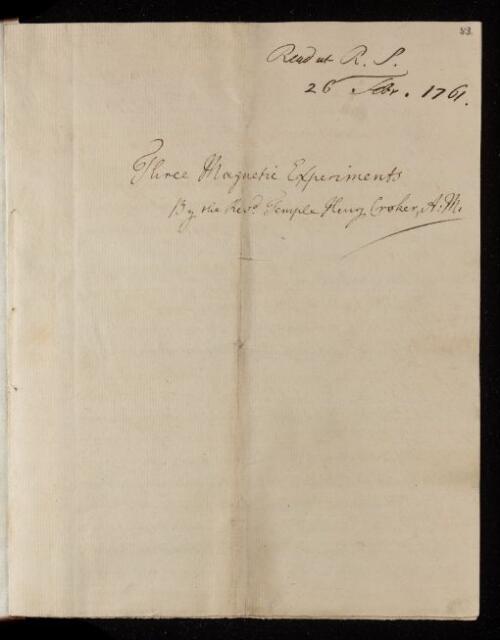 83.
Read at R. S.
26 Febr. 1761.
Three Magnetic Experiments
By the Revd. Temple Henry Croker, A: M: